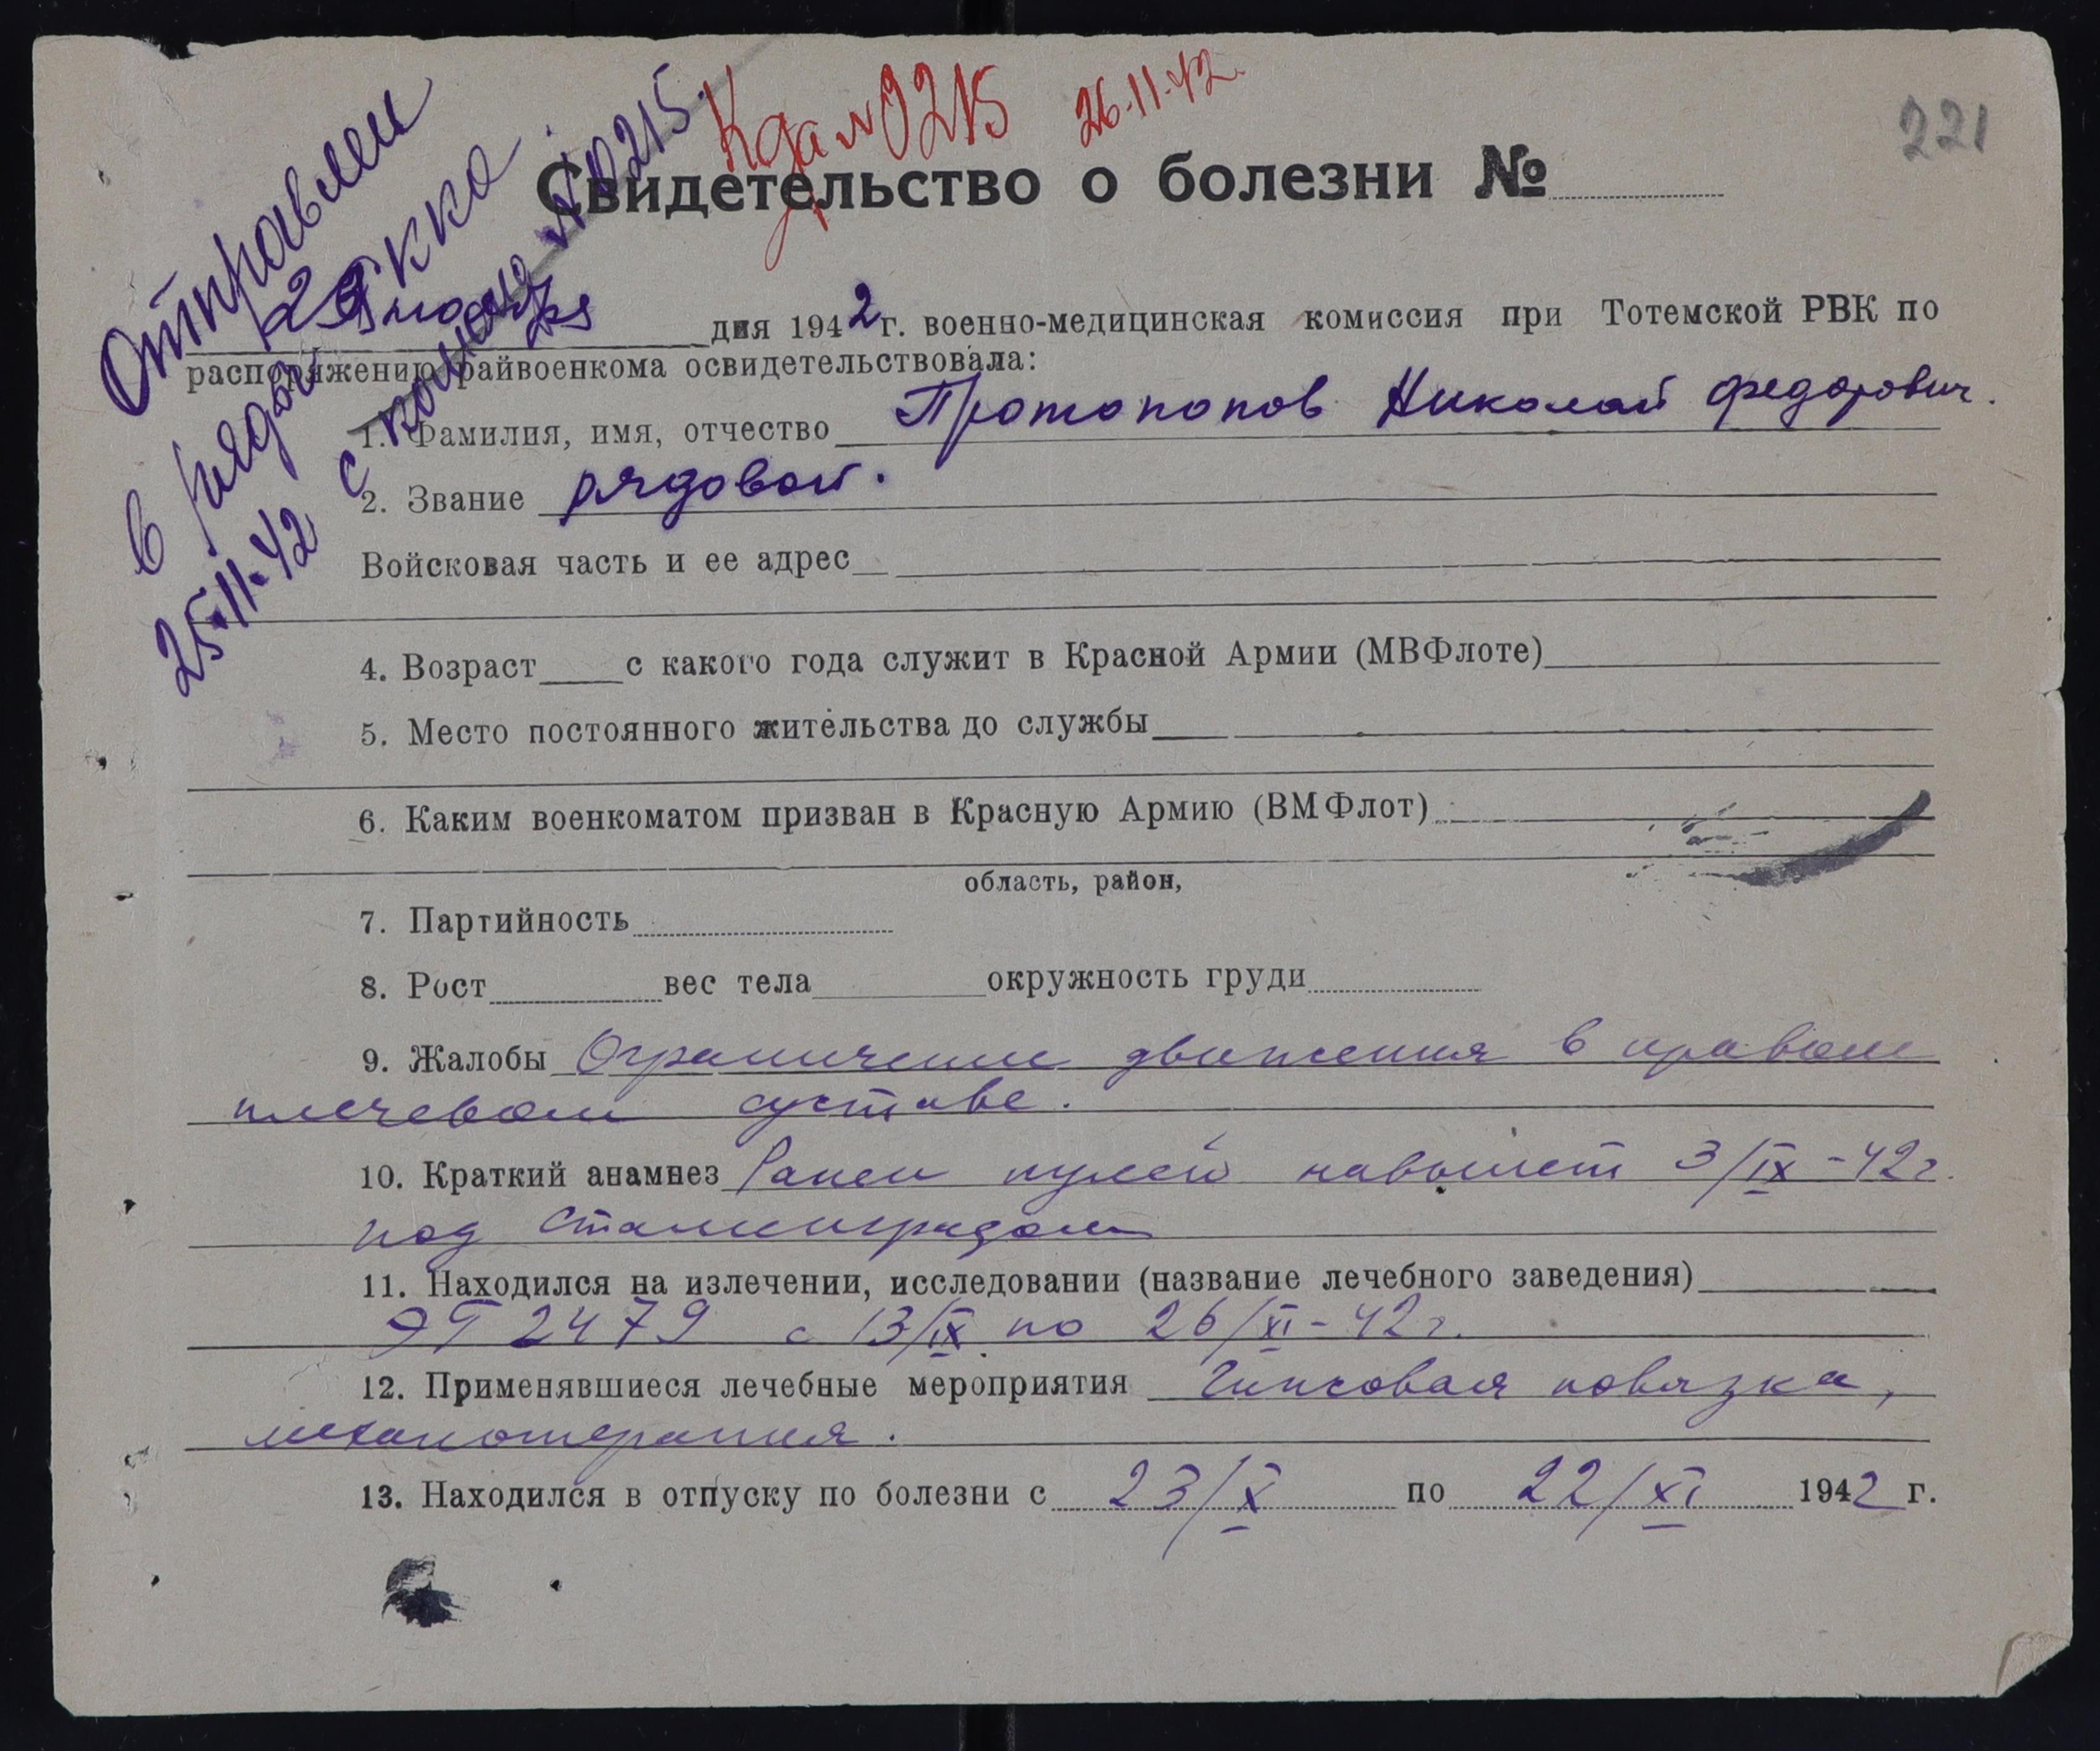 Кда №0215 26.11.42.
221
Отправлен
в ряды РККА
25.11.42 с командою №0215.
Свидетельство о болезни №
ноября дня 1942 г. военно-медицинская комиссия при Тотемской РВК по
распоряжению райвоенкома освидетельствовала:
1. Фамилия, имя, отчество Протопопов Николай Федорович.
2. Звание рядовой.
Войсковая часть и ее адрес
4. Возраст с какого года служит в Красной Армии (МВФлоте)
5. Место постоянного жительства до службы
6. Каким военкоматом призван в Красную Армию (ВМФлот)
область, район,
7. Партийность
8. Рост вес тела окружность груди
9. Жалобы Ограничение движения в правом
плечевом суставе.
10. Краткий анамнез Ранен пулей навылет 3/IX-42г.
под Сталинградом
11. Находился на излечении, исследовании (название лечебного заведения)
ЭГ 2479 с 13/IX по 26/XI-42г.
12. Применявшиеся лечебные мероприятия Гипсовая повязка,
механотерапия.
13. Находился в отпуску по болезни с 23/X по 22/XI 1942 г.